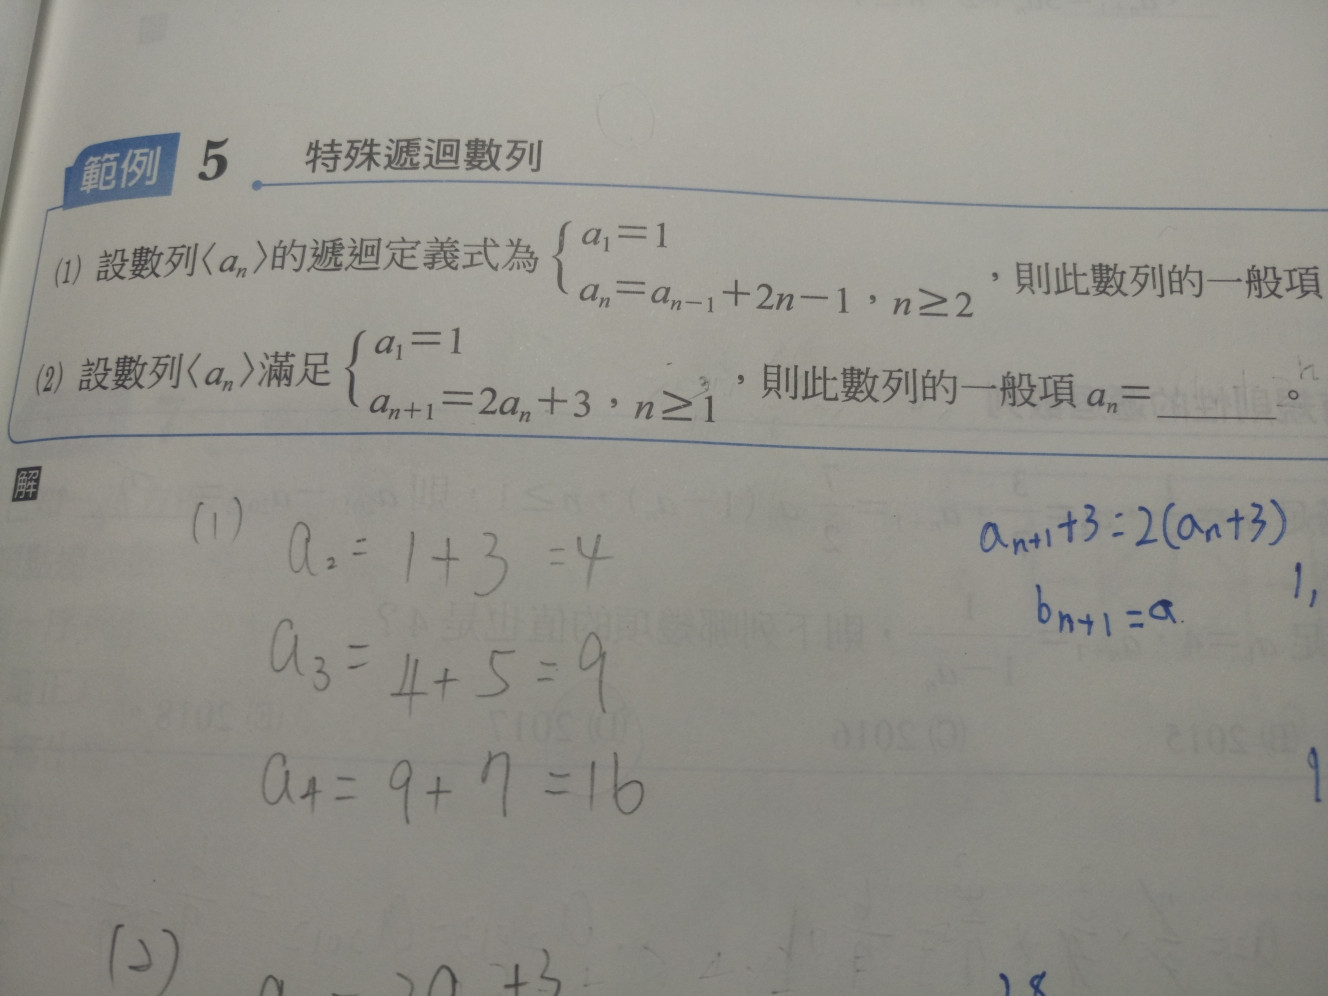 範例 5 特殊遞迴數列
(1) 設數列〈aₙ〉的遞迴定義式為 { a₁=1
aₙ=aₙ₋₁+2n-1，n≥2 ，則此數列的一般項
(2) 設數列〈aₙ〉滿足 { a₁=1
aₙ₊₁=2aₙ+3，n≥1 ，則此數列的一般項 aₙ=______。
解
(1) a₂= 1+3 =4
a₃= 4+5=9
a₄= 9+7=16
aₙ₊₁+3=2(aₙ+3)
bₙ₊₁=a
1,
(2)